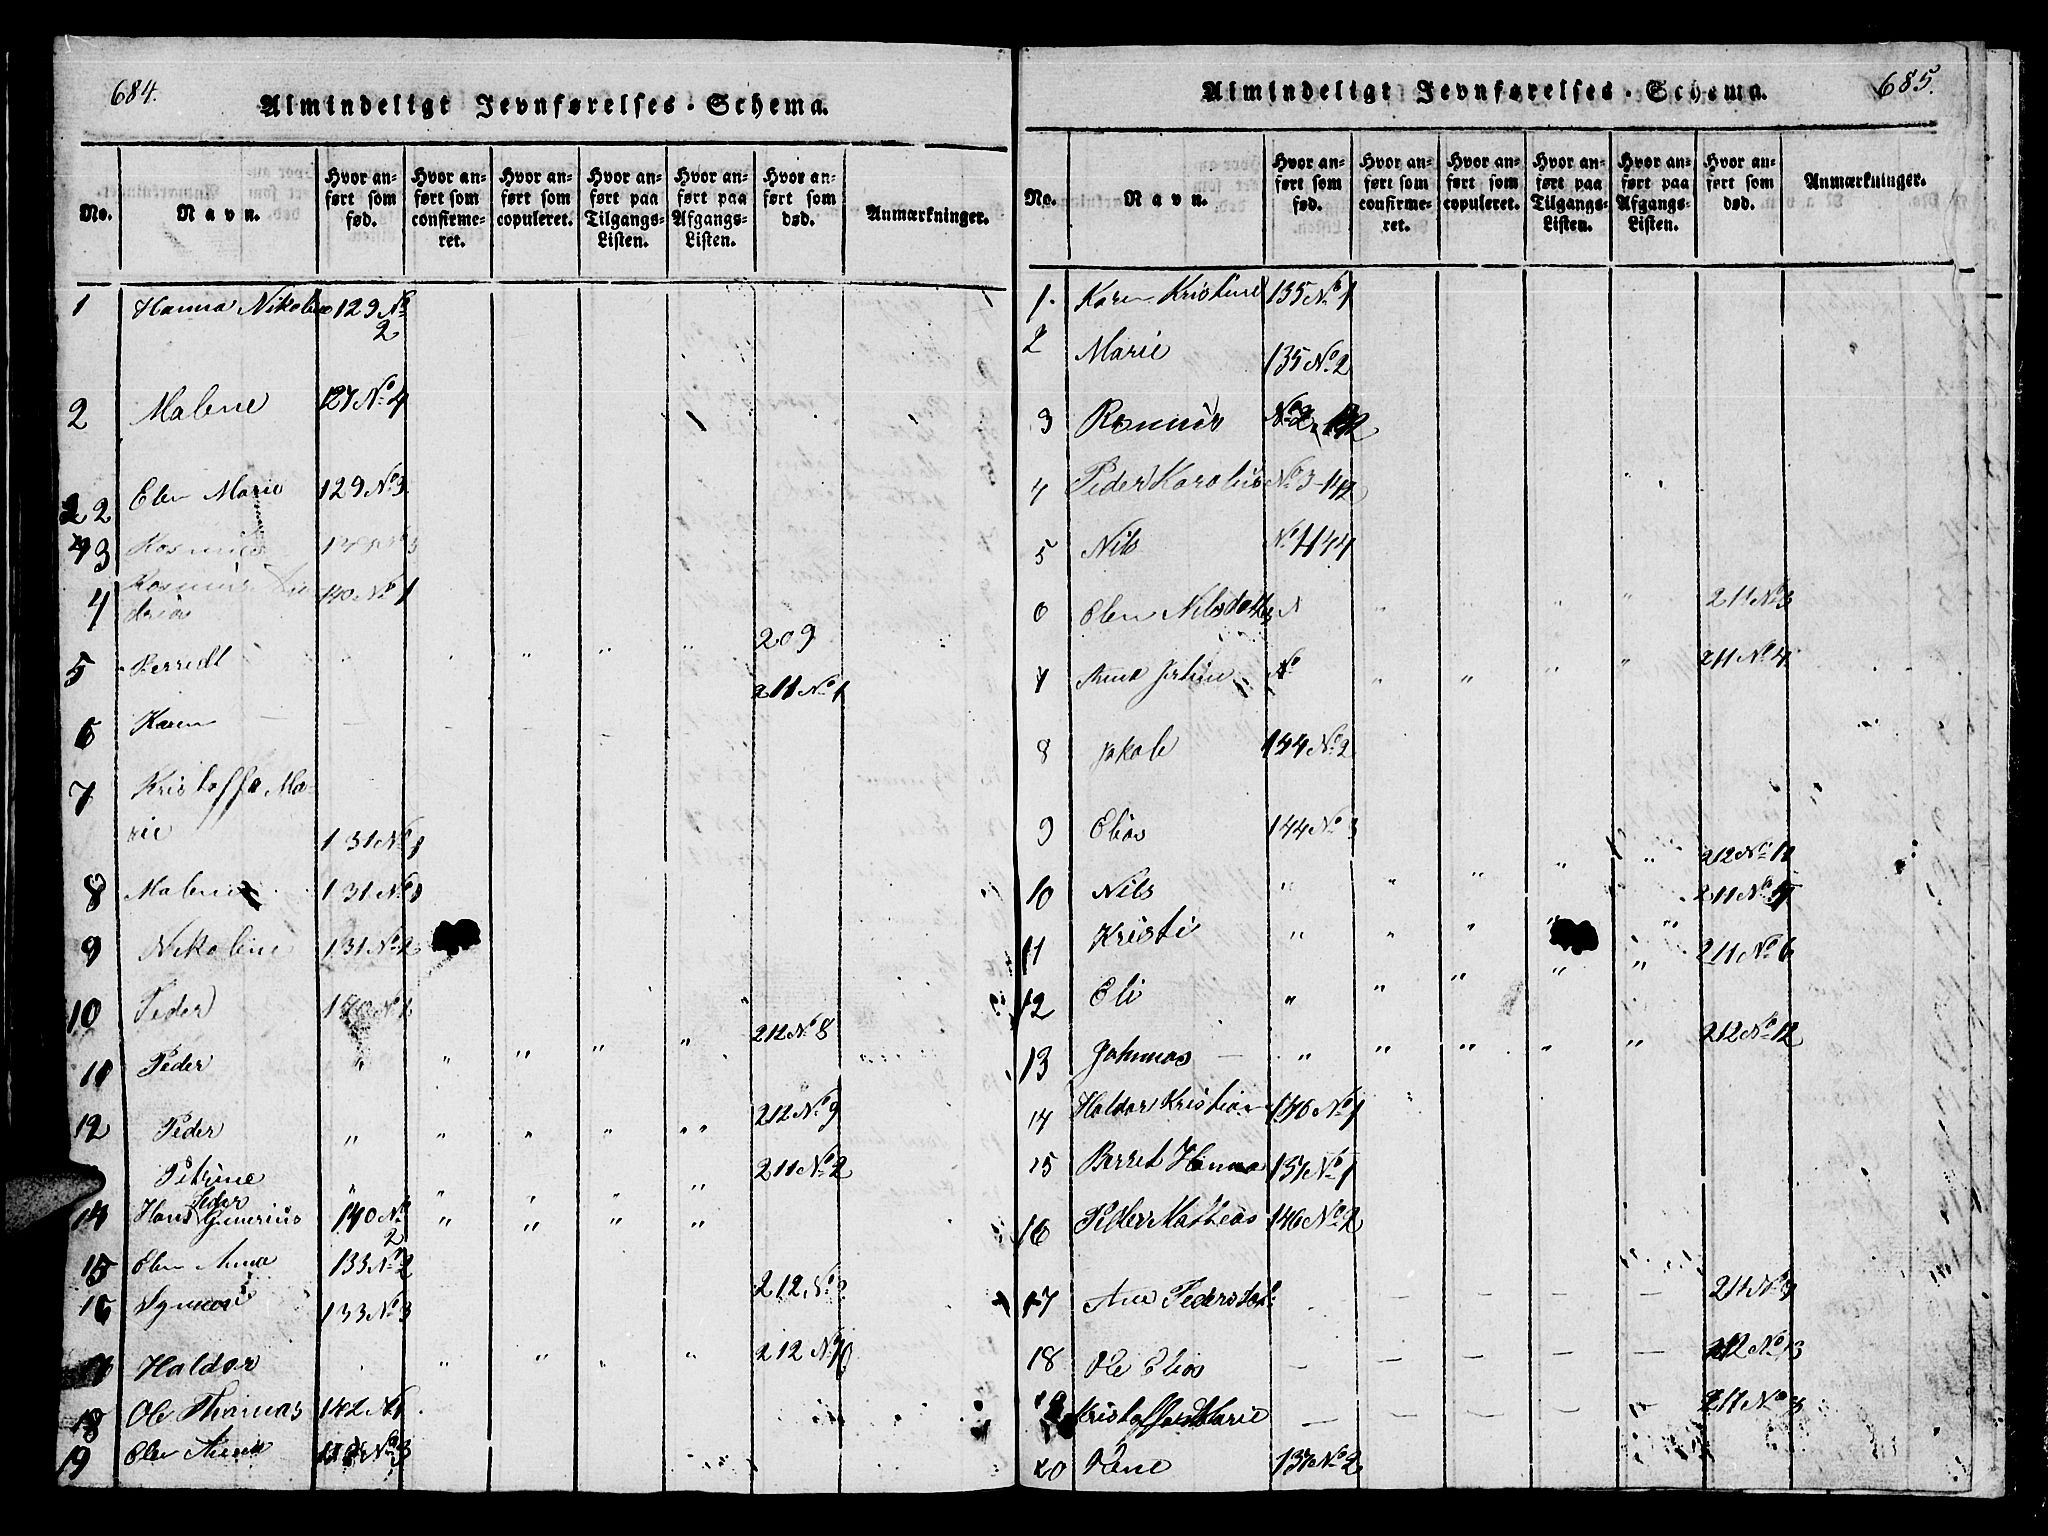 684.
Almindeligt Jevnførelses-Schema.
No. Navn. Hvor anført som fød. Hvor anført som confirmeret. Hvor anført som copuleret. Hvor anført paa Tilgangs-Listen. Hvor anført paa Afgangs-Listen. Hvor anført som død. Anmærkninger.
1 Hanna Nikoline 129 No
2
2 Malene 127 No 4
2 Elen Marie 129 No 3
3 Rasmus
4 Rasmus An
dreas 140 No 1
5 Berredt " " " 209
6 Karen 211 No 1
7 Kristoffa Ma-
rie 131 No 1
8 Malene 131 No
9 Nikoline 131 No 2
10 Peder 140 No 1
11 Peder " " " " " 212 No 8
12 Peder " " " " " 212 No 9
Petrine " " " " 211 No 2
Peder
14 Hans Gunerius 140 No " " " "
2
15 Elen Anna 133 No 2
16 133 No 3 212 No
Haldor " " " " 212 No 10
18 Ole Thomas 142 No 1
19 Elen Anna No 3
685.
Almindeligt Jevnførelses-Schema.
No. Navn. Hvor anført som fød. Hvor anført som confirmeret. Hvor anført som copuleret. Hvor anført paa Tilgangs-Listen. Hvor anført paa Afgangs-Listen. Hvor anført som død. Anmærkninger.
1. Karen Kristine 135 No 1
2 Marie 135 No 2
3 Rasmus No 2
4 Peder Karolius No 3-142
5 Nils No 1 144
6 Elen Nilsdatter N " " " " 211 No 3
7 Anna No " " " " 211 No 4
8 Jakob 144 No 2
9 Elias 144 No 3
10 Nils " " " " " 212 No 11
11 Kristi " " " " " 211 No 5
12 Eli " " " " " 211 No 6
13 Johannas " " " " " 212 No 12
14 Haldor Kristian 146 No 1
15 Berret Hanna 137 No 1
16 Peder Mathias 146 No 2
17 Ane Pedersdat: — — — — 211 No
18 Ole Elias — — — — — 212 No 13
19 Kristoffa Marie — — — — — 211 No
20 Lene 137 No 2